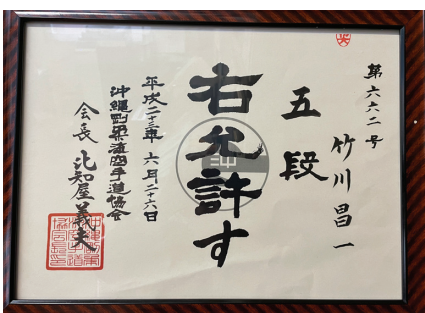 第六六二号
竹川昌一
五段
右允許す
平成二十三年六月二十六日
沖縄剛柔流空手道協会
会長 比知屋義夫